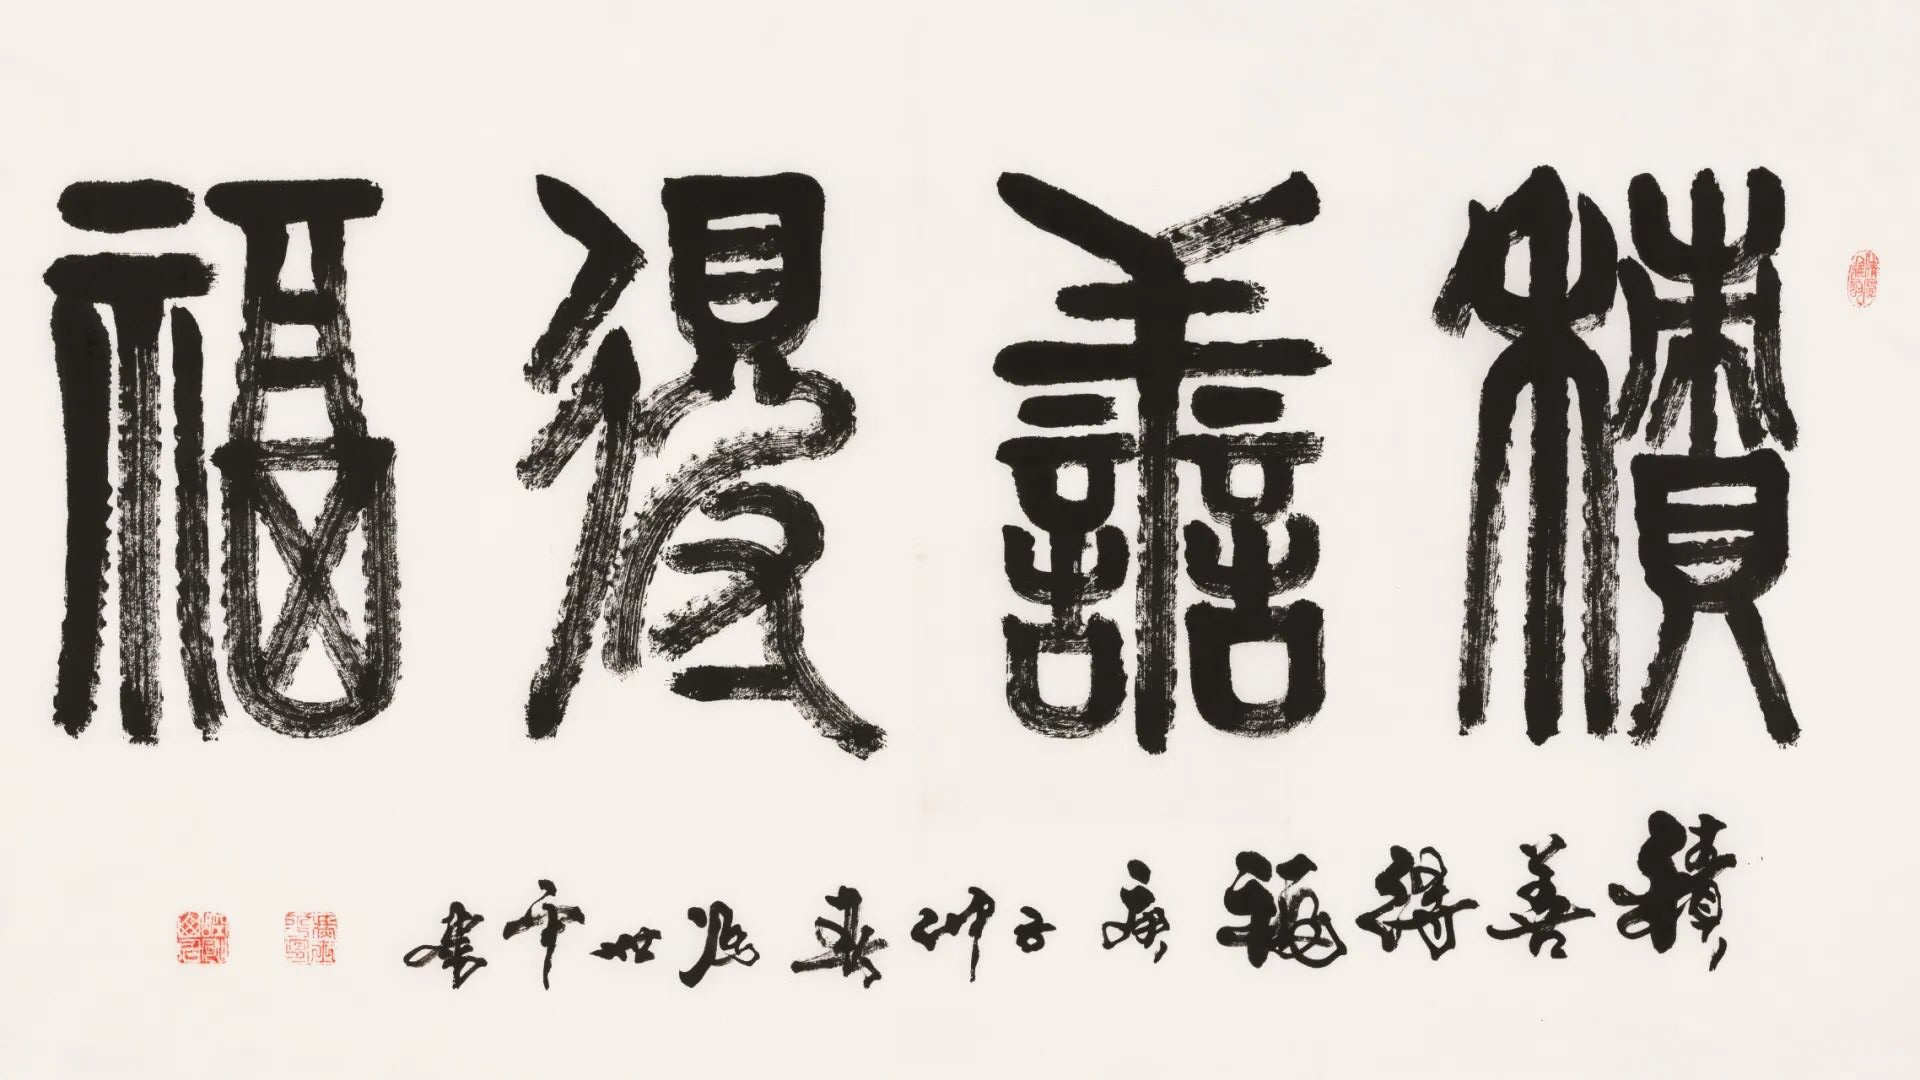 積善得福
積善得福庚子仲春馮世平書